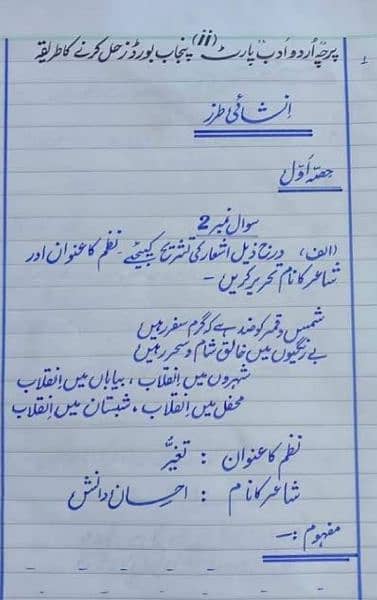 پرچہ اُردو اَدب پارٹ (ii) پنجاب بورڈز حل کرنے کا طریقہ
اِنشائی طرز
حصّہ اَوّل
سوال نمبر 2
(الف) درج ذیل اشعار کی تشریح کیجیے۔ نظم کا عنوان اور
شاعر کا نام تحریر کریں -
شمس و قمر کو ضد ہے کہ گرمِ سفر رہیں
بے رنگیوں میں خالقِ شام و سحر رہیں
شہروں میں اِنقلاب ، بیاباں میں اِنقلاب
محفل میں اِنقلاب ، شبستان میں اِنقلاب
نظم کا عنوان : تغیُّر
شاعر کا نام : احسان دانش
مفہوم :—